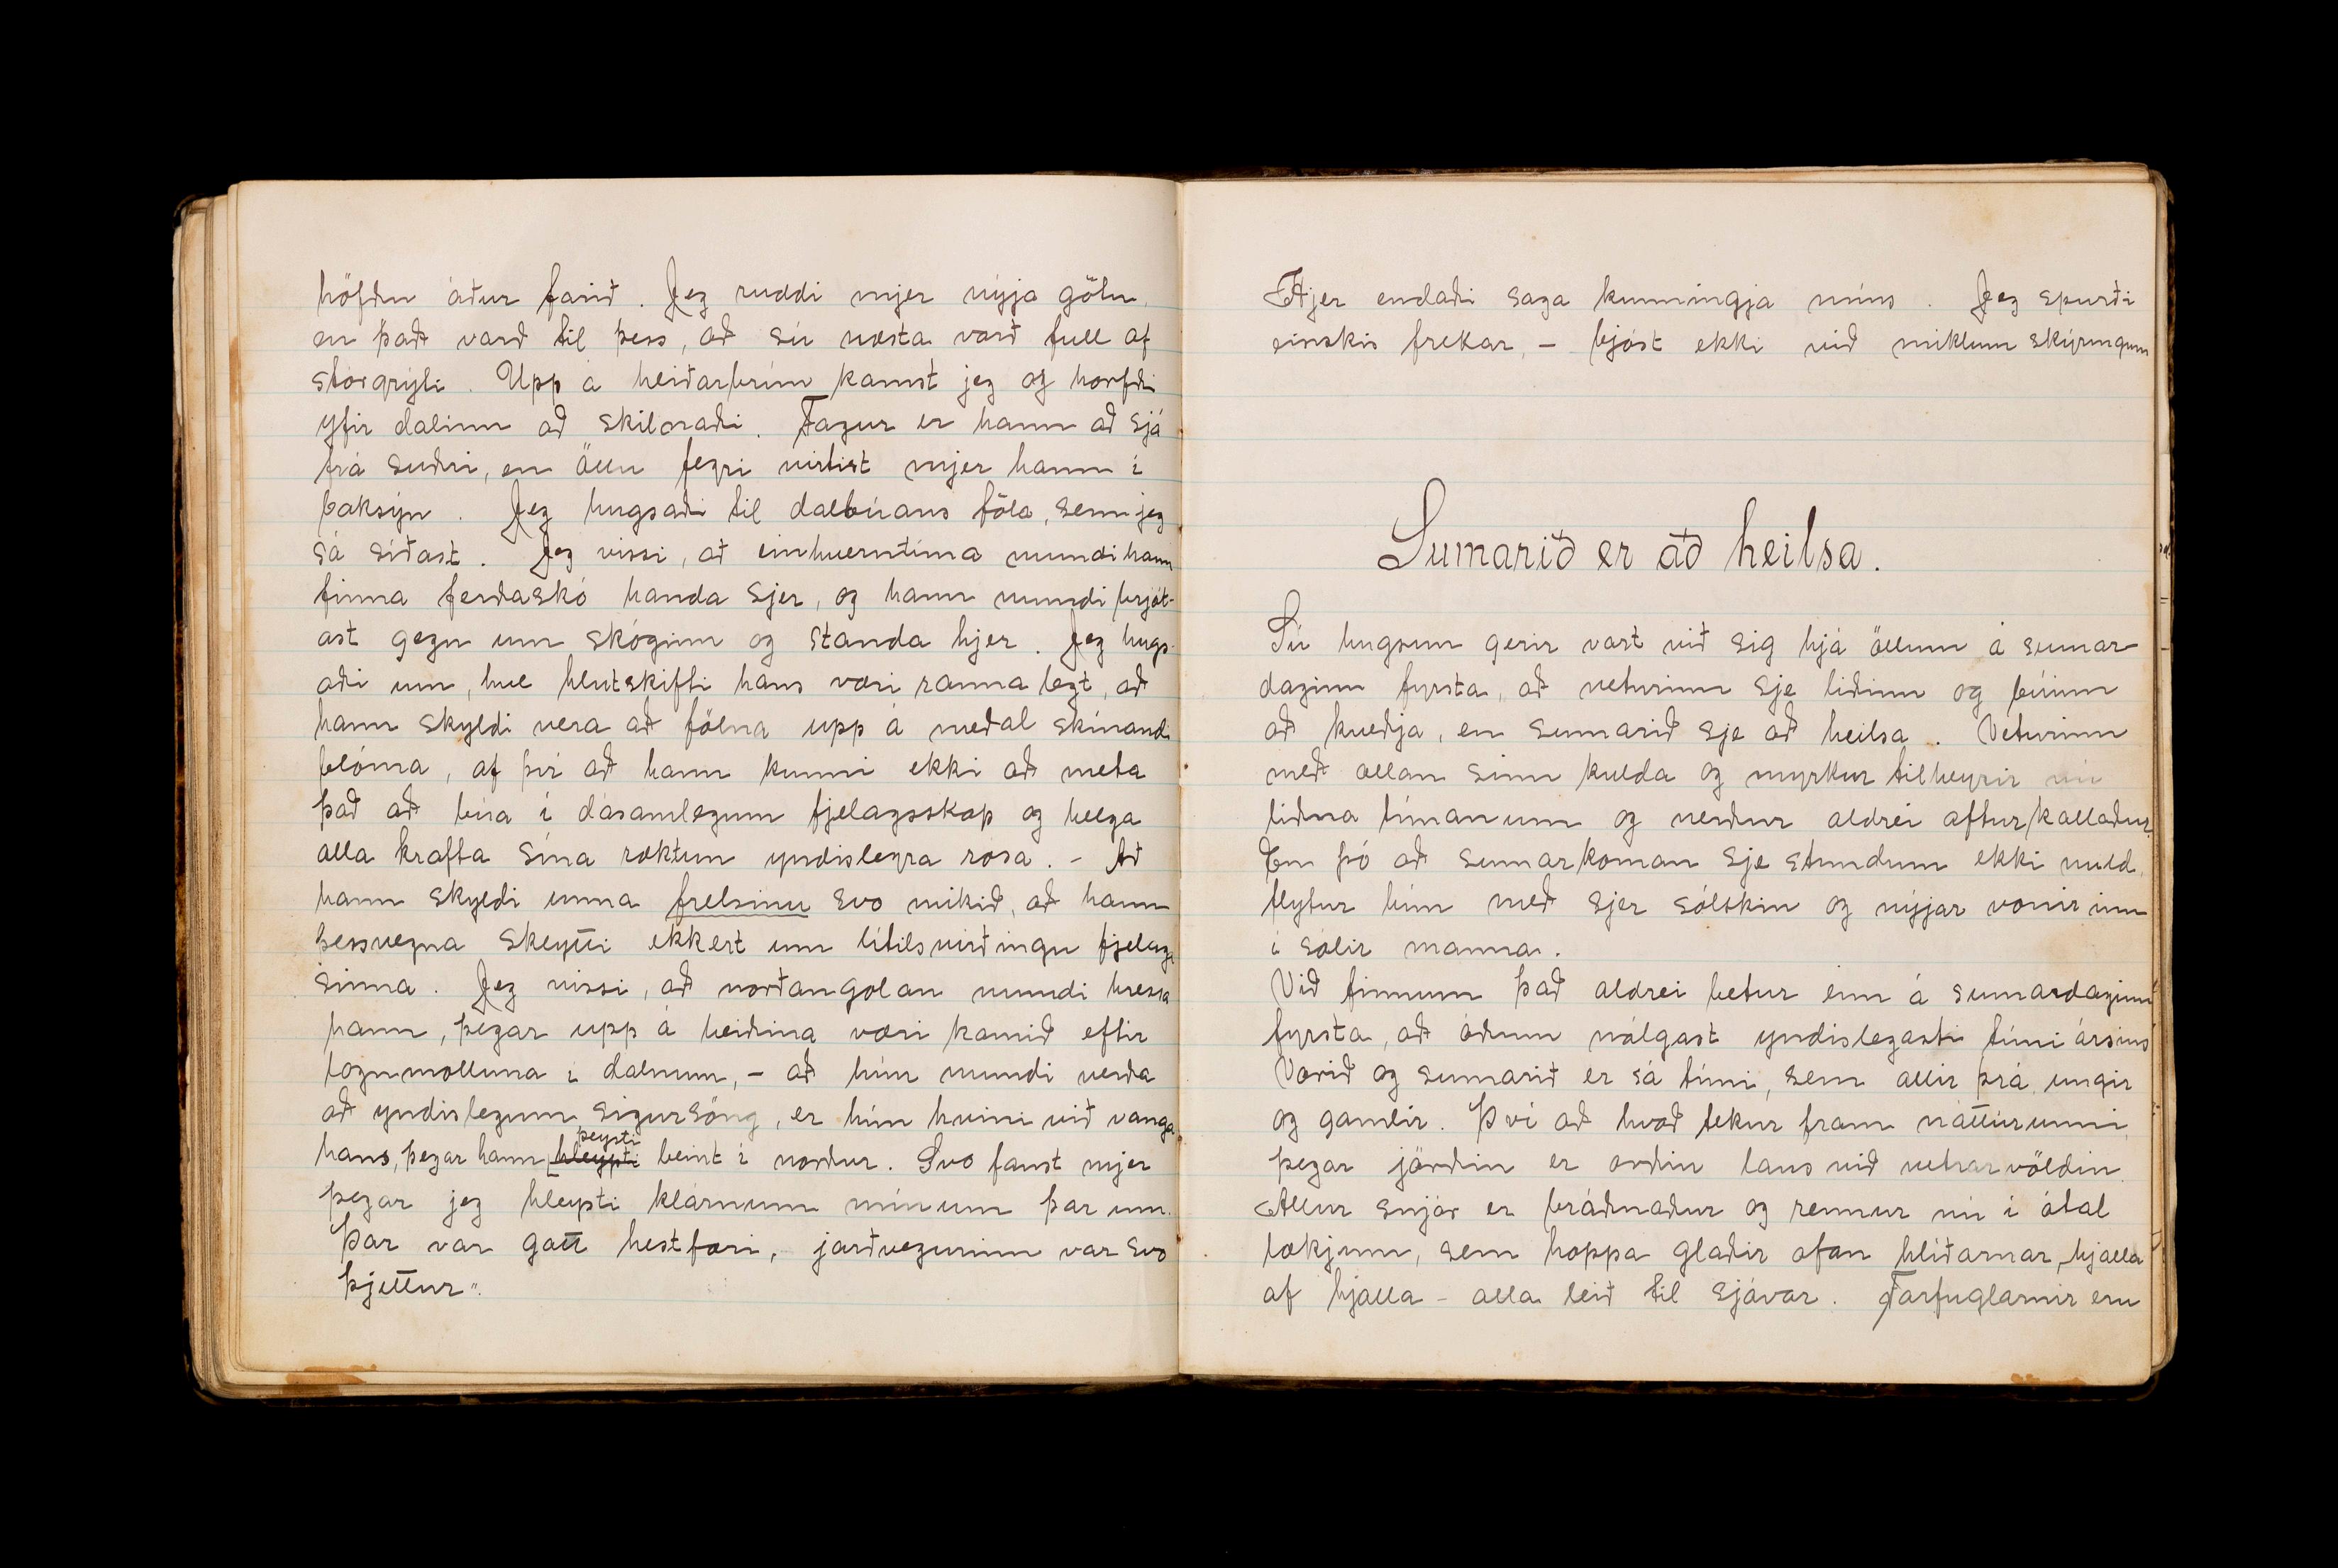 höfðu áður farið. Jeg ruddi mjer nýja götu,
en það varð til þess, að sú næsta varð full af
stórgrýti. Upp á heiðarbrún komst jeg og horfði
yfir dalinn að skilnaði. Fagur er hann að sjá
frá suðri, en öllu fegri virtist mjer hann í
baksýn. Jeg hugsaði til dalbúans föla, sem jeg
sá síðast. Jeg vissi, að einhverntíma mundi hann
finna ferðaskó handa sjer, og hann mundi brjót-
ast gegn um skóginn og standa hjer. Jeg hugs-
aði um, hve hlutskifti hans væri rauna legt, að
hann skyldi vera að fölna upp á meðal skínandi
blóma, af því að hann kunni ekki að meta
það að búa í dásamlegum fjelagsskap og helga
alla krafta sína ræktun yndislegra rósa. - Að
hann skyldi unna frelsinu svo mikið, að hann
þessvegna skeytti ekkert um lítilsvirðingu fjelaga
sinna. Jeg vissi, að norðangolan mundi hressa
hann, þegar upp á heiðina væri komið eftir
lognmolluna í dalnum, - að hún mundi verða
að yndislegum sigursöng, er hún hvini við vanga
þeysti
hans, þegar hann hleypti beint í norður. Svo fanst mjer
þegar jeg hleypti klárnum mínum þar um.
Þar var gott hestfæri, jarðvegurinn var svo
þjettur".
Hjer endaði saga kunningja míns. Jeg spurði
einskis frekar, - bjóst ekki við miklum skýringum
Sumarið er að heilsa.
Sú hugsun gerir vart við sig hjá öllum á sumar
daginn fyrsta, að veturinn sje liðinn og búinn
að kveðja, en sumarið sje að heilsa. Veturinn
með allan sinn kulda og myrkur tilheyrir nú
liðna tímanum og verður aldrei aftur kallaður.
En þó að sumarkoman sje stundum ekki mild,
flytur hún með sjer sólskin og nýjar vonir inn
í sálir manna.
Við finnum það aldrei betur enn á sumardaginn
fyrsta, að óðum nálgast yndislegasti tími ársins
Vorið og sumarið er sá tími, sem allir þrá, ungir
og gamlir. Því að hvað tekur fram náttúrunni,
þegar jörðin er orðin laus við vetrarvöldin.
Allur snjór er bráðnaður og rennur nú í ótal
lækjum, sem hoppa glaðir ofan hlíðarnar, hjalla
af hjalla - alla leið til sjávar. Farfuglarnir eru